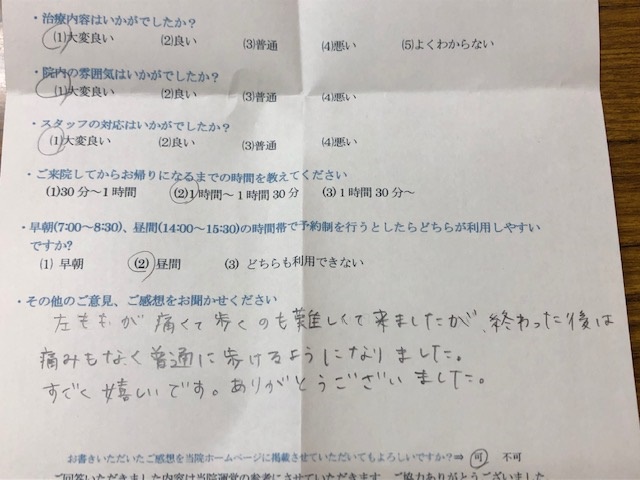 ・治療内容はいかがでしたか？
(1)大変良い (2)良い (3)普通 (4)悪い (5)よくわからない
・院内の雰囲気はいかがでしたか？
(1)大変良い (2)良い (3)普通 (4)悪い
・スタッフの対応はいかがでしたか？
(1)大変良い (2)良い (3)普通 (4)悪い
・ご来院してからお帰りになるまでの時間を教えてください
(1)30分～1時間 (2)1時間～1時間30分 (3)1時間30分～
・早朝(7:00～8:30)、昼間(14:00～15:30)の時間帯で予約制を行うとしたらどちらが利用しやすい
ですか?
(1) 早朝 (2) 昼間 (3) どちらも利用できない
・その他のご意見、ご感想をお聞かせください
左ももが痛くて歩くのも難しくて来ましたが、終わった後は
痛みもなく普通に歩けるようになりました。
すごく嬉しいです。ありがとうございました。
お書きいただいたご感想を当院ホームページに掲載させていただいてもよろしいですか？⇒ 可 不可
ご回答いただきました内容は当院運営の参考にさせていただきます。ご協力ありがとうございました